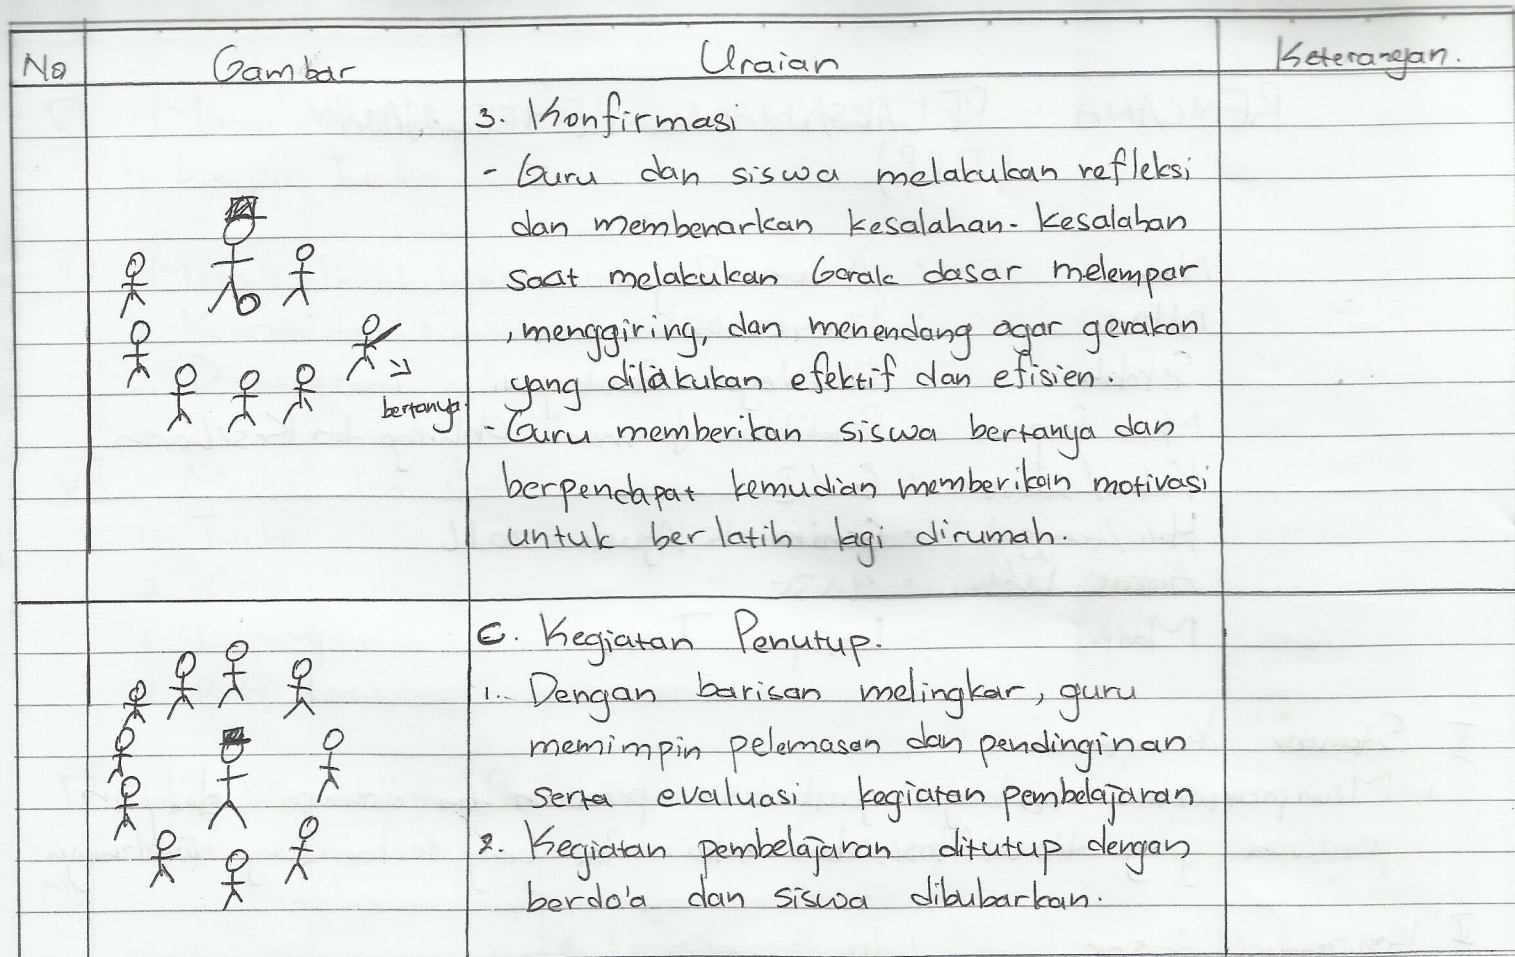 No Gambar Uraian Keterangan.
3. Konfirmasi
- Guru dan siswa melakukan refleksi
dan membenarkan kesalahan-kesalahan
saat melakukan Gerak dasar melempar
, menggiring, dan menendang agar gerakan
yang dilakukan efektif dan efisien.
bertanya
- Guru memberikan siswa bertanya dan
berpendapat kemudian memberikan motivasi
untuk berlatih lagi dirumah.
C. Kegiatan Penutup.
1. Dengan barisan melingkar, guru
memimpin pelemasan dan pendinginan
serta evaluasi kegiatan pembelajaran
2. Kegiatan pembelajaran ditutup dengan
berdo'a dan siswa dibubarkan.